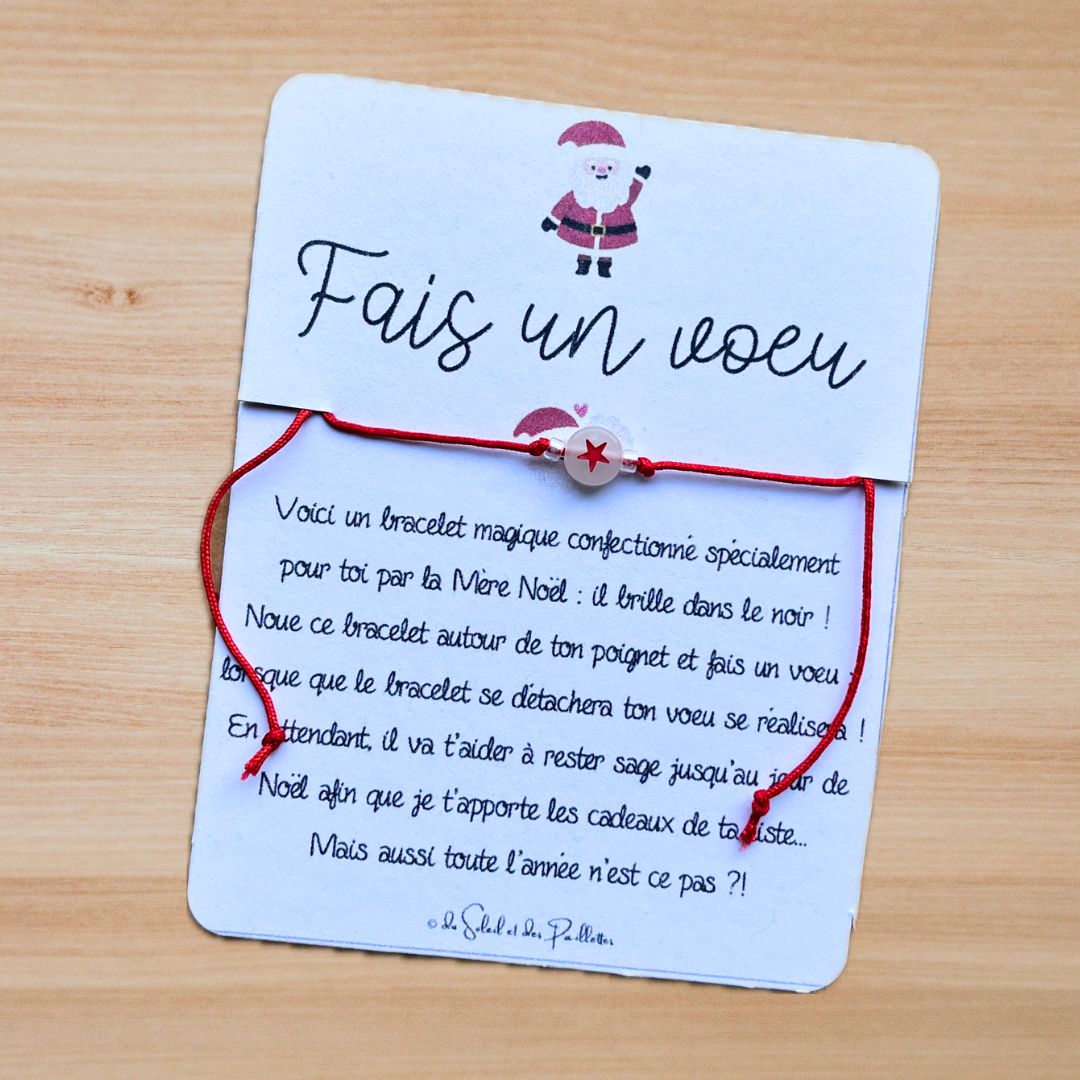 Fais un voeu
Voici un bracelet magique confectionné spécialement
pour toi par la Mère Noël : il brille dans le noir !
Noue ce bracelet autour de ton poignet et fais un voeu :
lorsque que le bracelet se détachera ton voeu se réalisera !
En attendant, il va t'aider à rester sage jusqu'au jour de
Noël afin que je t'apporte les cadeaux de ta liste...
Mais aussi toute l'année n'est ce pas ?!
© du Soleil et des Paillettes